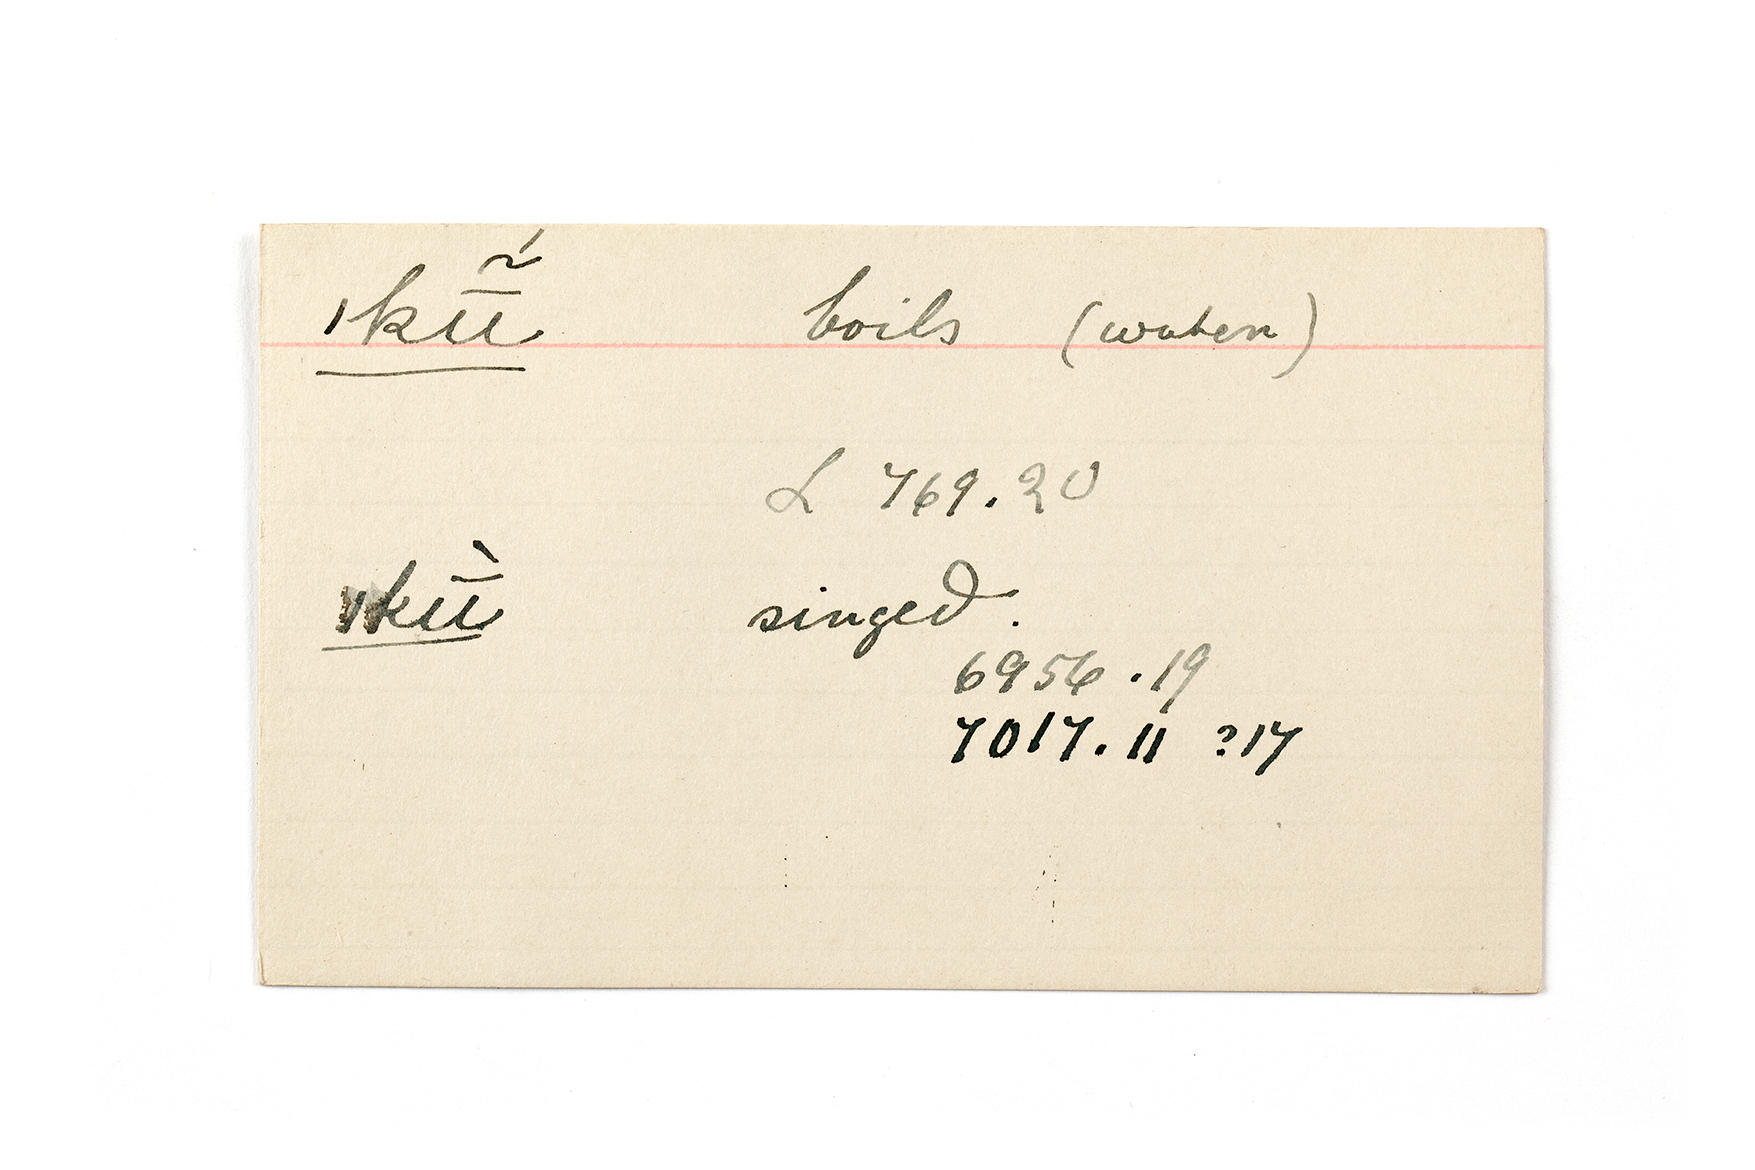 ǀkū̃́ boils (water)
L 769.20
ǀkū̀ singed.
6956.19
7017.11 ?17